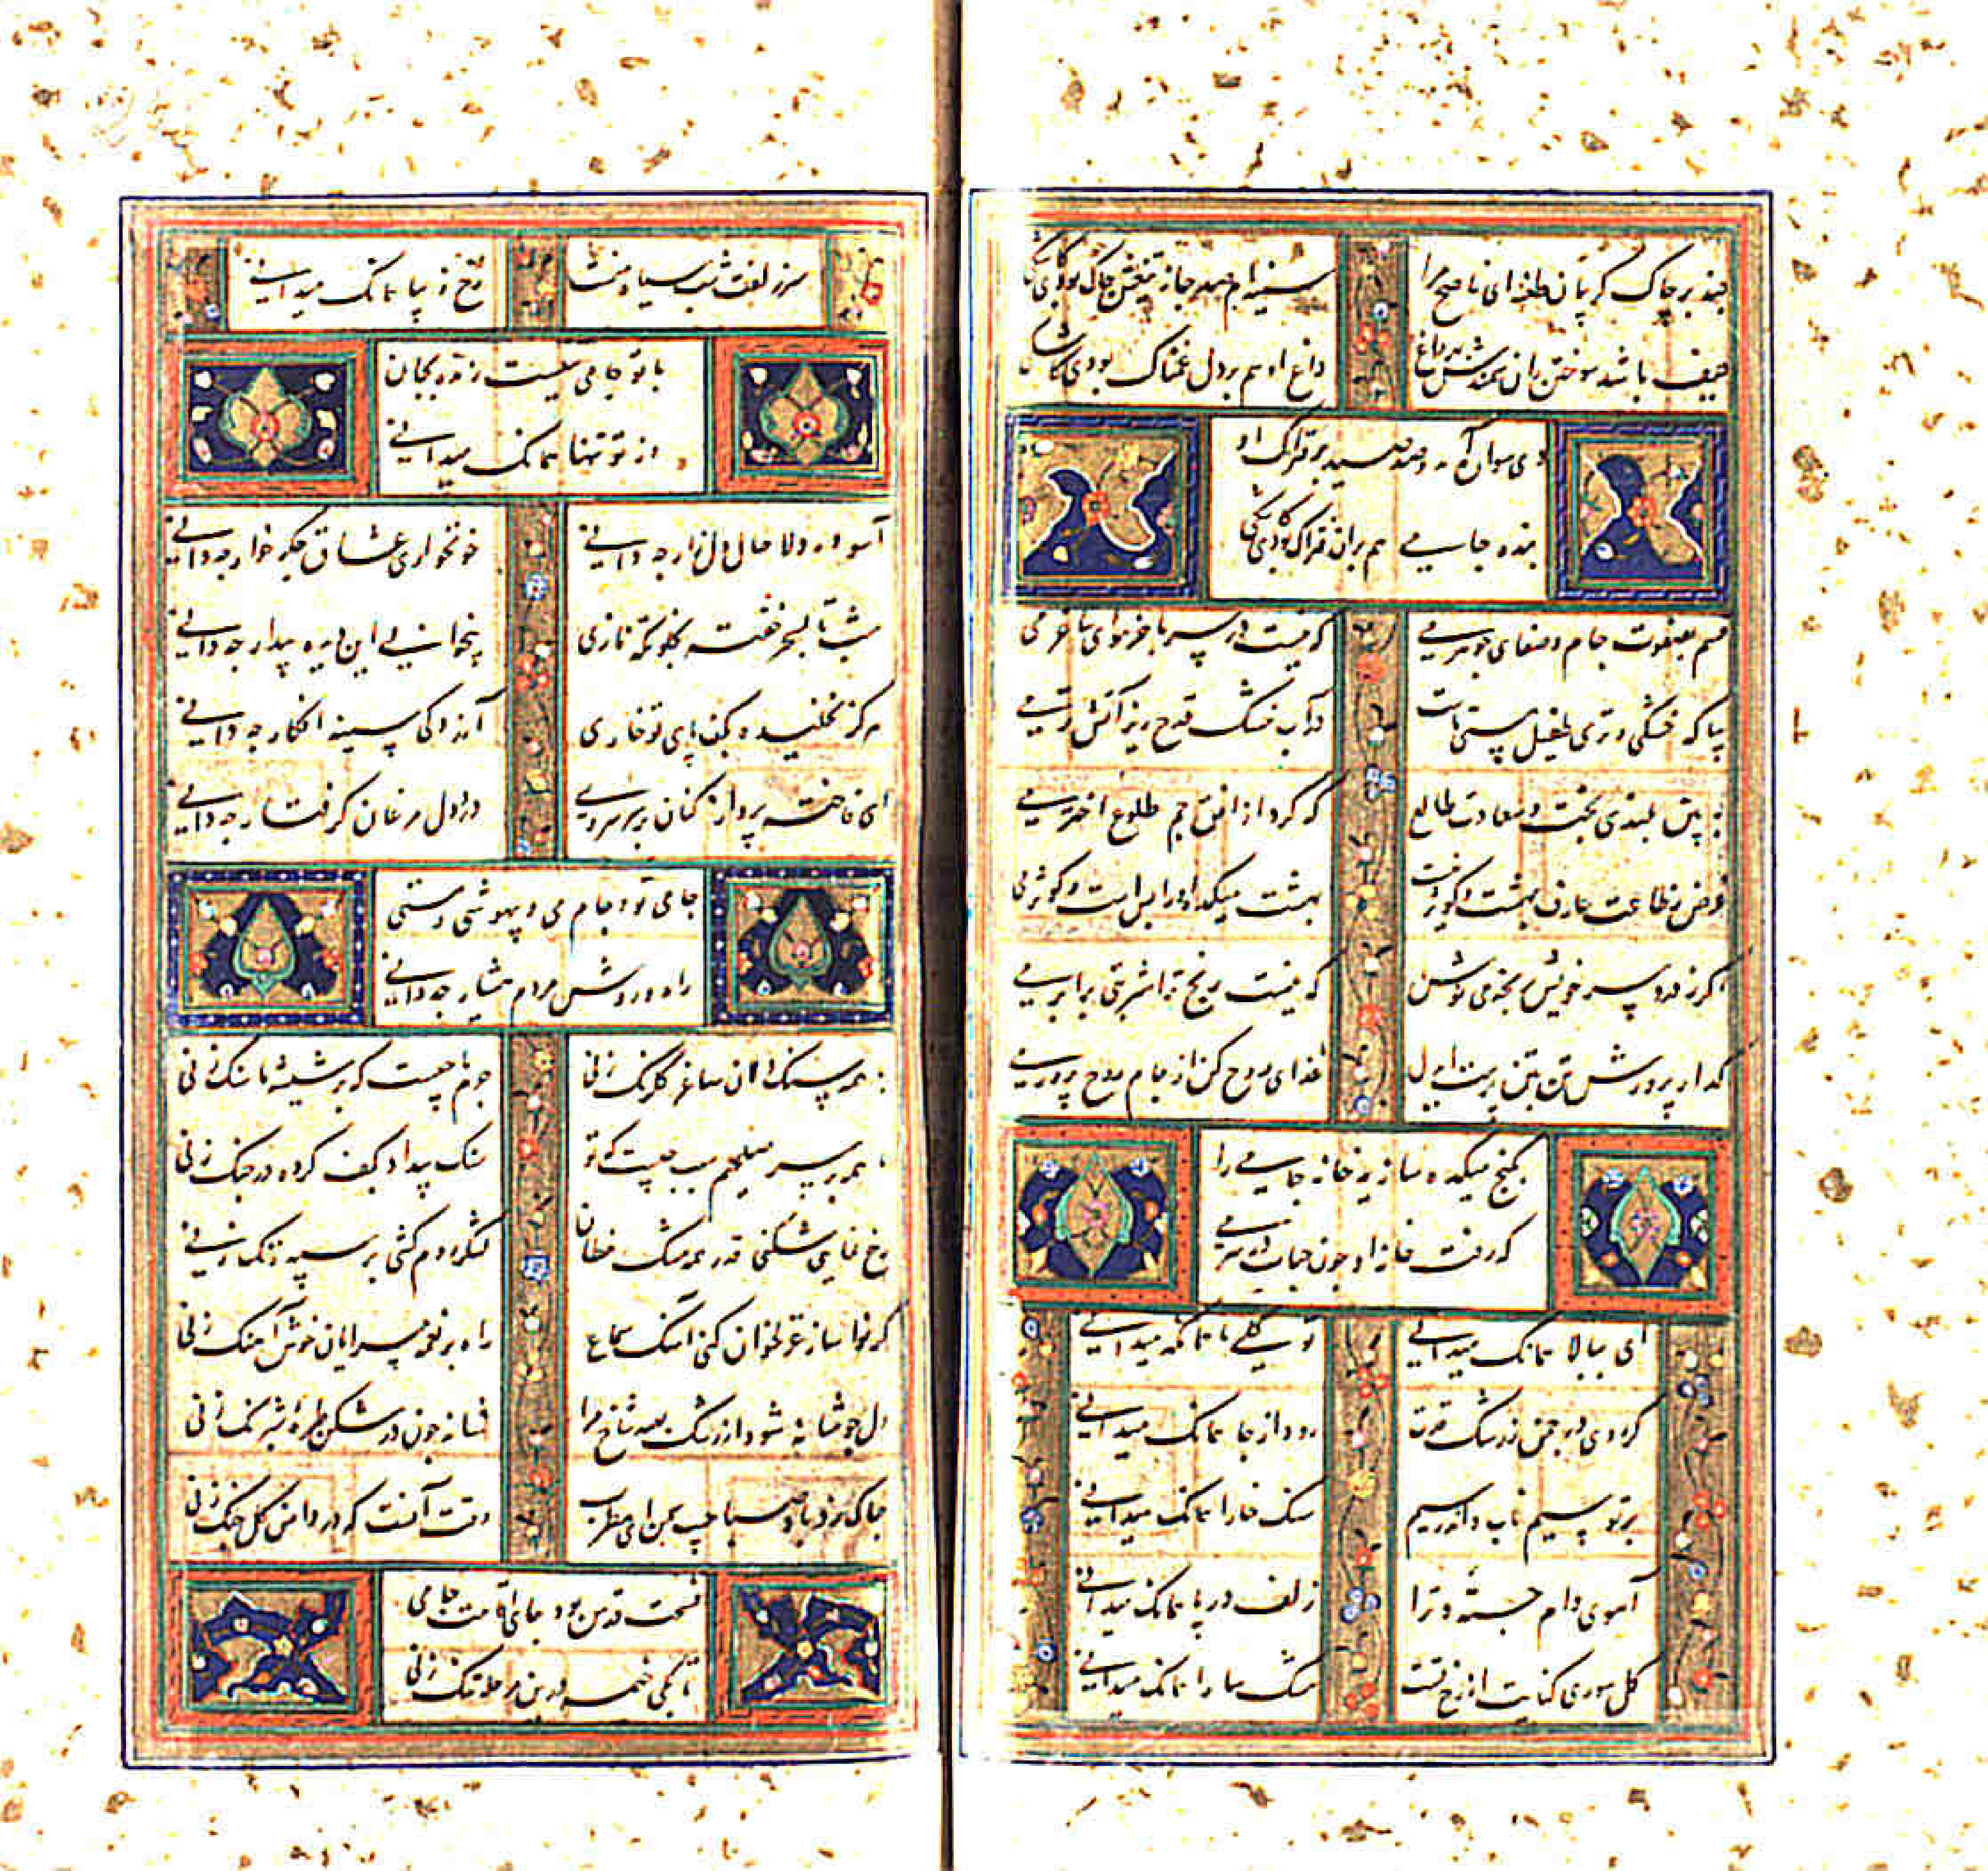 چند بر چاک گریبان طعنه ای ناصح مرا
سینه ام صد جا ز تیغش چاک بودی کاشکی
حیف باشد سوختن ران سمندش را بداغ
داغ او هم بر دل غمناک بودی کاشکی
دی سواره آمد و صد صید بر فتراک او
بنده جامی هم بران فتراک بودی کاشکی
قسم بصفوت جام و صفای جوهر می
که نیست در سر ما جز هوای ساغر می
بیا که خشکی و تری طفیل هستی تست
در آب خشک قدح ریز آتش تر می
ببین بلندی بخت و سعادت طالع
که کرد از افق جم طلوع اختر می
غرض ز طاعت عارف بهشت و کوثر نیست
بهشت میکده او را بس است و کوثر می
اگر ز درد سر خویش رنجه می نوش
که نیست رنج ترا شربتی برابر می
گذار پرورش تن بتن پرست ای دل
غذای روح کن از جام روح پرور می
بکنج میکده سازید خانه جامی را
که رفت خانه او چون حباب در سر می
ای ببالا چنانک میدانی
تو گلی ما چنانکه میدانی
کردی در چمن ز رشک قدت
رود از جا چنانک میدانی
بر تو سیم ناب و اندر سیم
سنگ خارا چنانک میدانی
آهوی دام جسته و ترا
زلف در پا چنانک میدانی
گل سوری کنایت از رخ تست
مشک سارا چنانک میدانی
سر زلفت شب سیاه منست
رخ زیبا چنانک میدانی
با تو جامی نیست زنده بجان
از تو تنها چنانک میدانی
آسوده دلا حال دل زار چه دانی
خونخواری عشاق جگر خوار چه دانی
شب تا بسحر خفته بخلوتگه نازی
بیخوابی این دیده بیدار چه دانی
هرگز نخلیده بکف پای تو خاری
آزردگی سینه افکار چه دانی
ای فاخته پرواز کنان بر سر سروی
درد دل مرغان گرفتار چه دانی
جامی تو و جام می و بیهوشی و مستی
راه و روش مردم هشیار چه دانی
با همه سنگدلان ساغر گلرنگ زنی
جرم ما چیست که بر شیشه ما سنگ زنی
با همه بر سر صلحیم سبب چیست که تو
سنگ بیداد بکف کرده در جنگ زنی
رخ نمایی شکنی قدر همه مشک خطان
لشکر روم کشی بر سپه زنگ زنی
گر نوا ساز غزلخوان کنی آهنگ سماع
راه بر نغمه سرایان خوش آهنگ زنی
دل چو شانه شود از رشک بصد شاخ مرا
شانه چون در شکن طره شبرنگ زنی
چاک زد باد صبا جیب چمن ای مطرب
وقت آنست که در دامن گل چنگ زنی
فسحت قدس بود جای اقامت جامی
تا بکی خیمه درین مرحله تنگ زنی